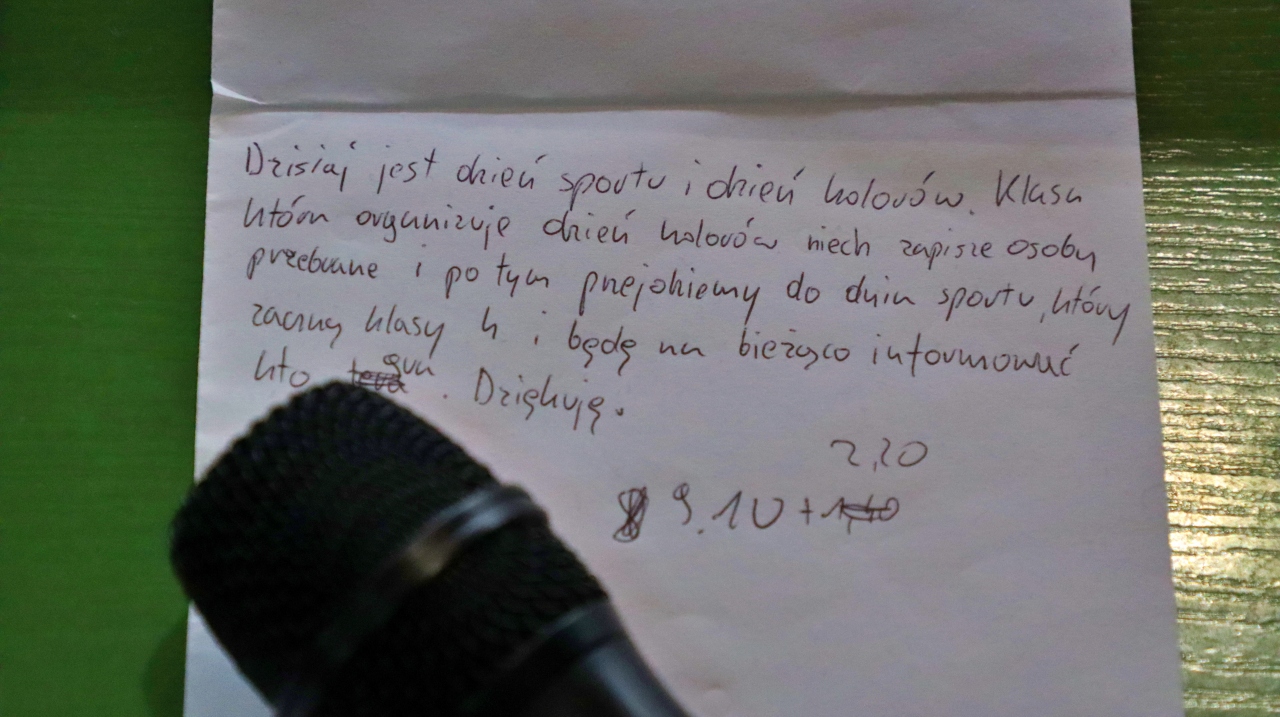 Dzisiaj jest dzień sportu i dzień kolorów. Klasa
która organizuje dzień kolorów niech zapisze osoby
przebrane i po tym przejdziemy do dnia sportu, który
zaczną klasy 4 i będę na bieżąco informować
kto gra. Dziękuję.
2,20
9.10 + 1,40